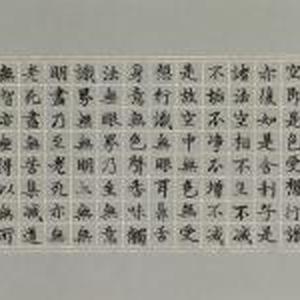 空即是色受想行識
亦復如是舍利子是
諸法空相不生不滅
不垢不淨不增不減
是故空中無色無受
想行識無眼耳鼻舌
身意無色聲香味觸
法無眼界乃至無意
識界無無明亦無無
明盡乃至老死亦無
老死盡無苦集滅道
無智亦無得以無所